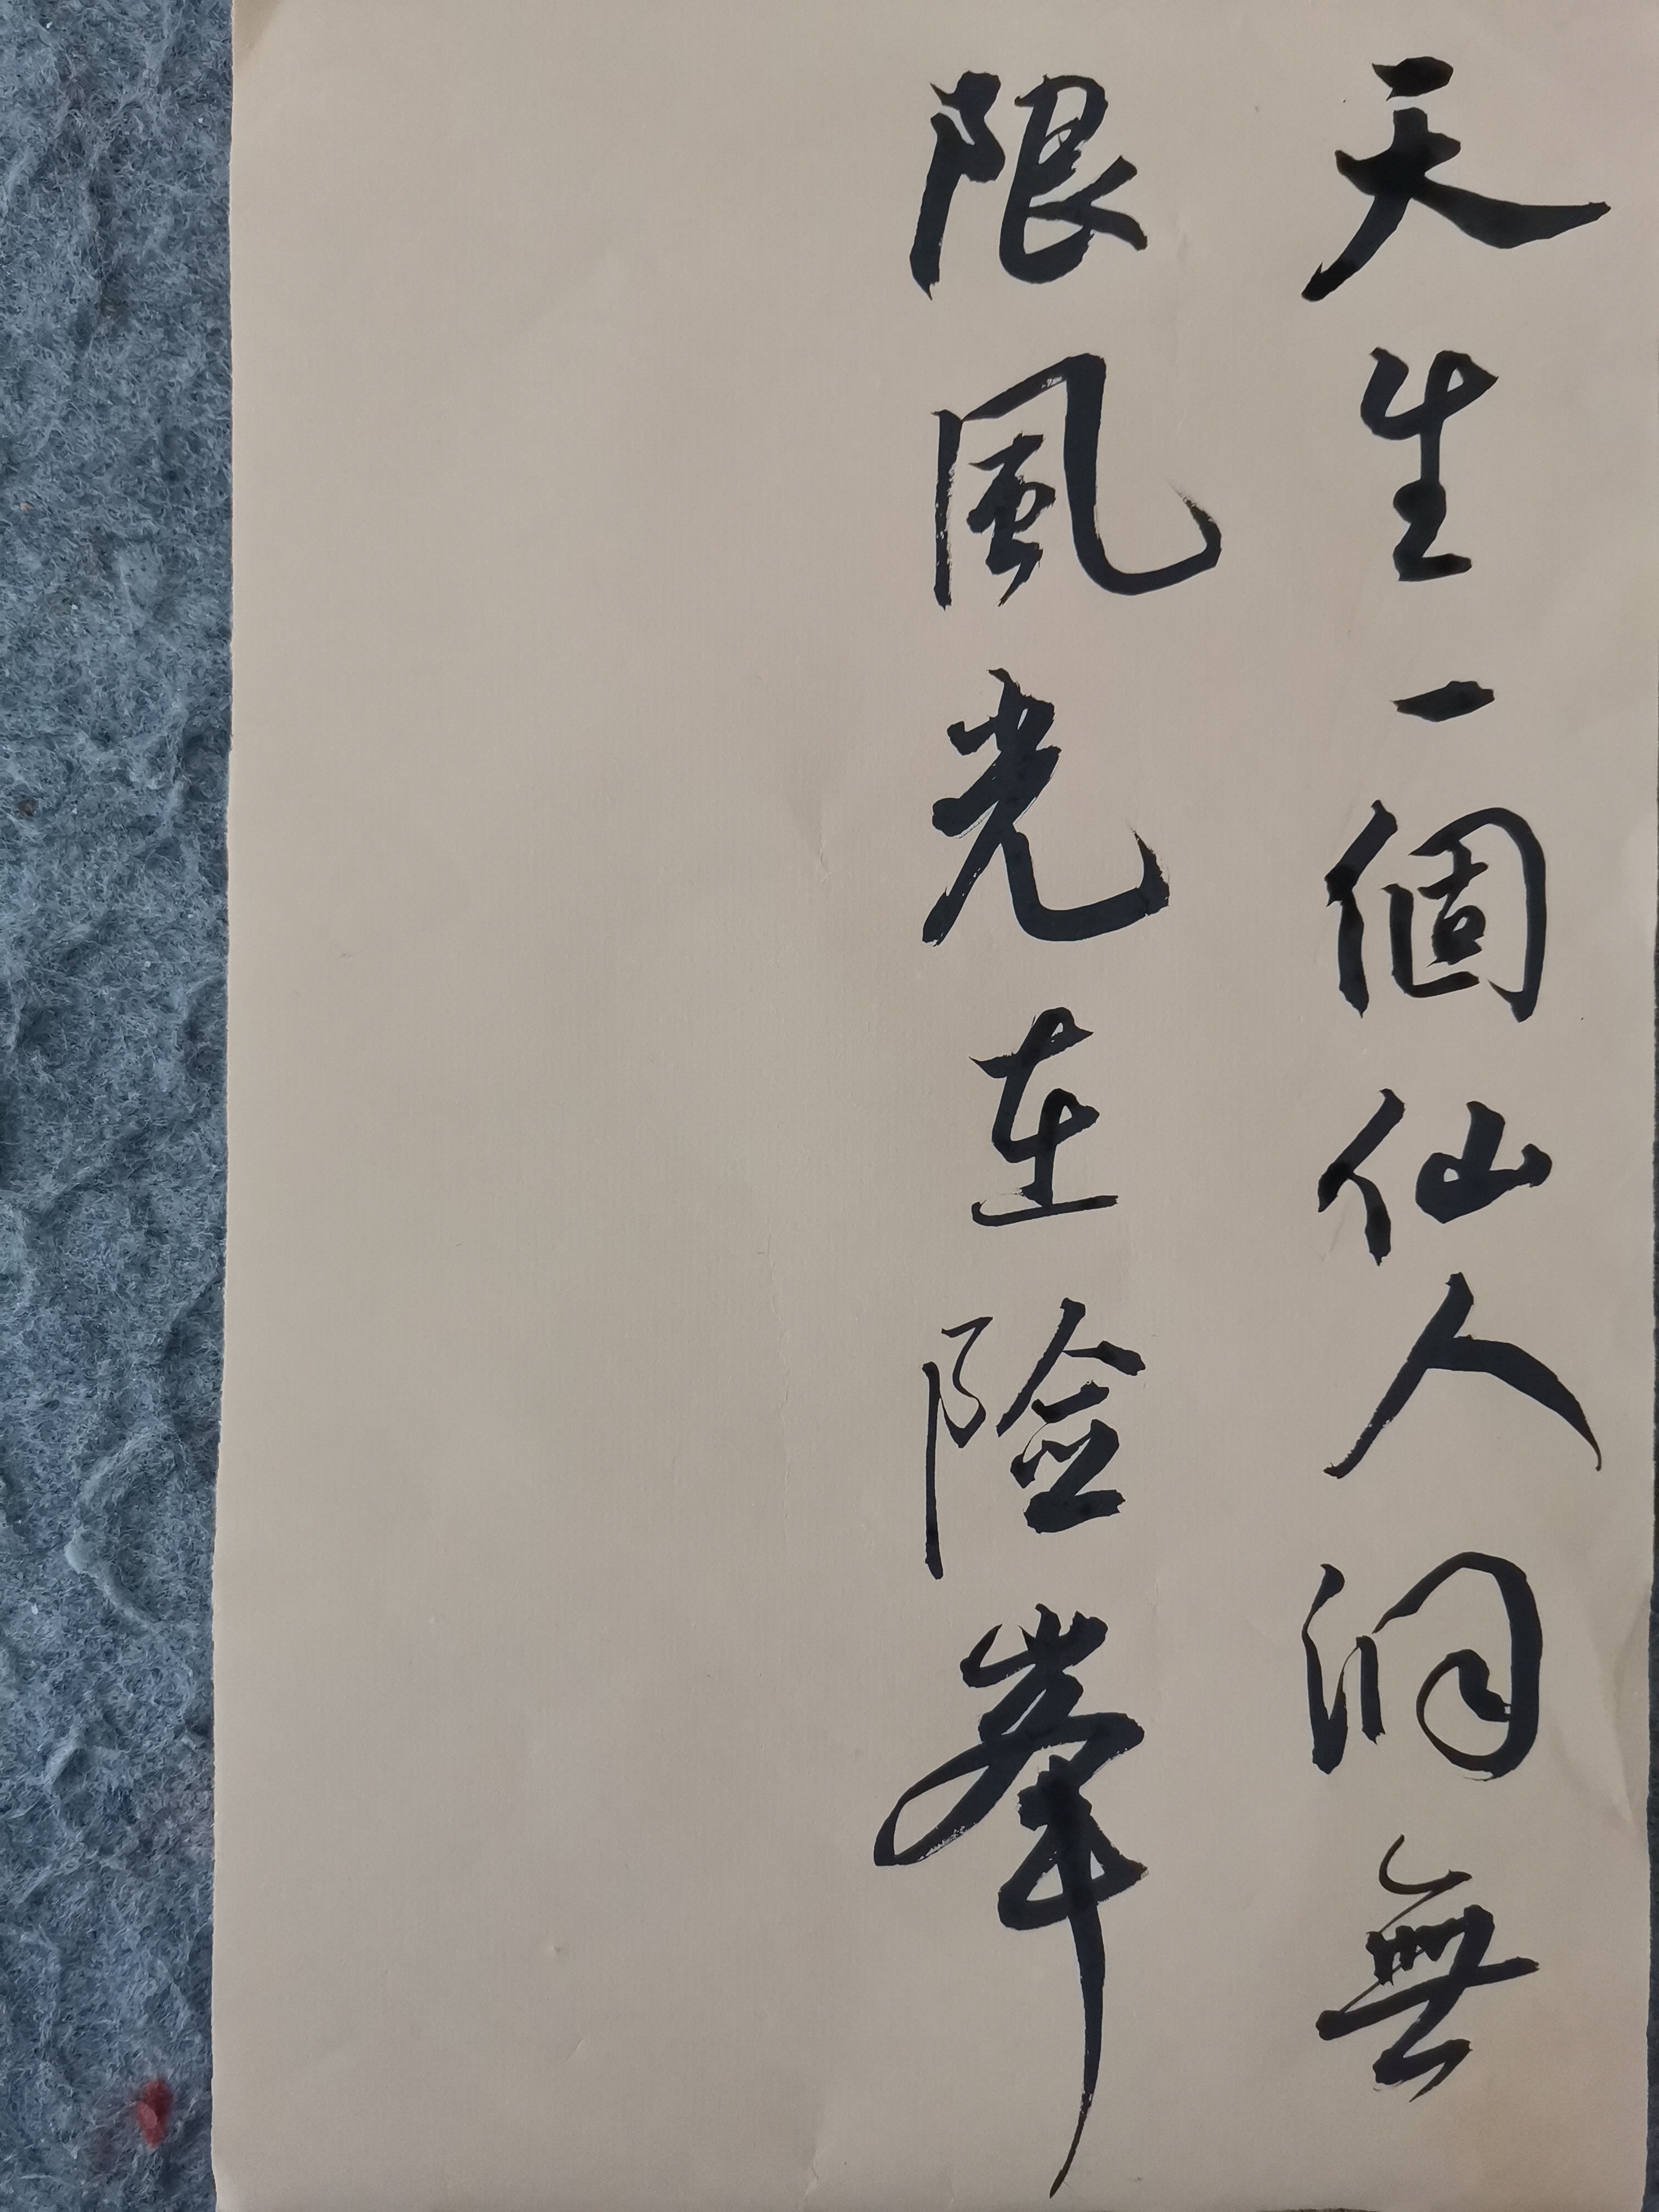 天生一個仙人洞無
限風光在險峯